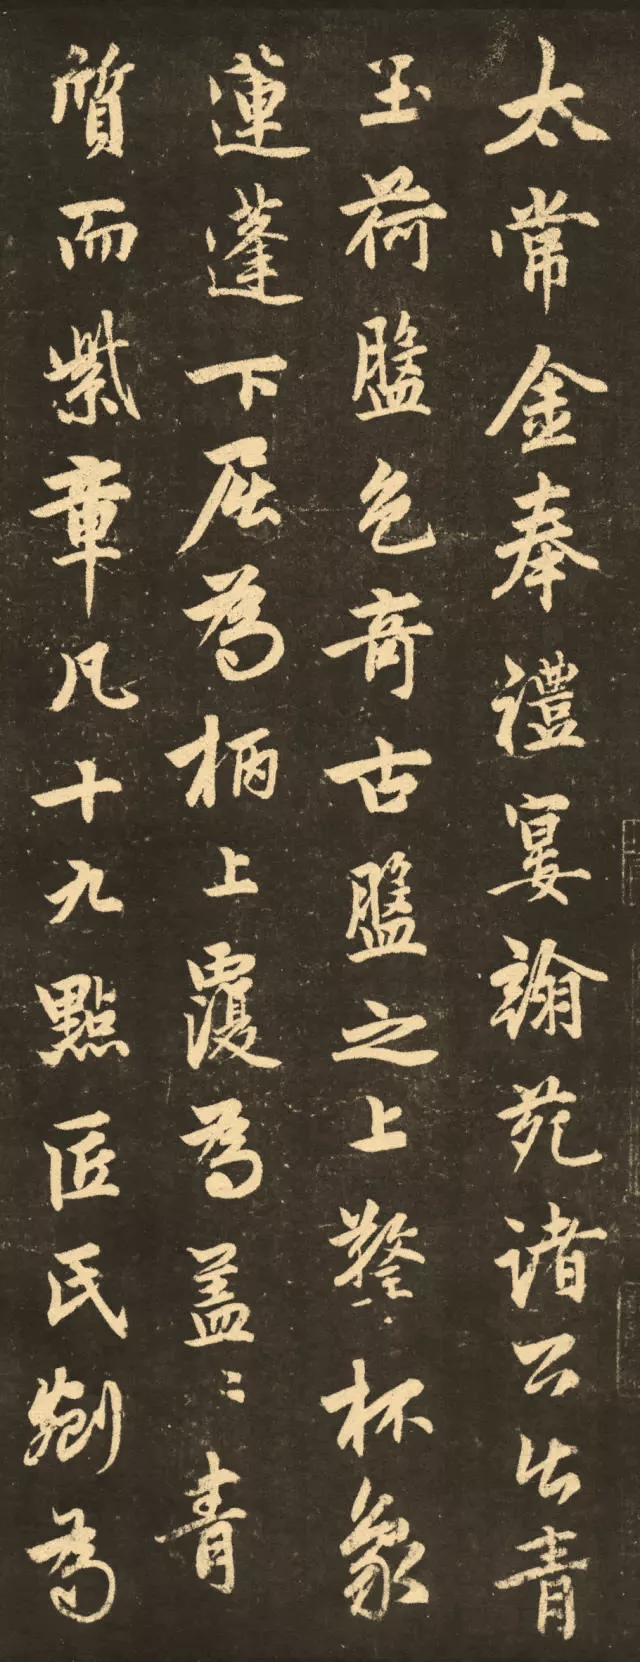 太常金奉禮宴翰苑諸公出青
玉荷盤色奇古盤之上杯象
蓮蓬下屈為柄上覆為蓋〻青
質而紫章凡十九點匠氏為